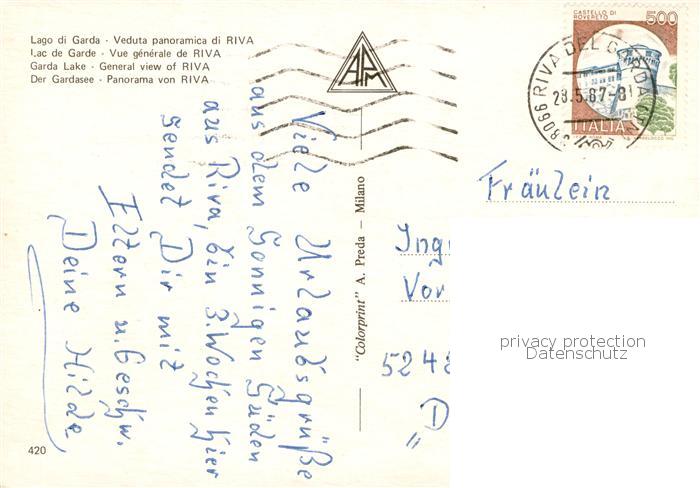 Lago di Garda - Veduta panoramica di RIVA
Lac de Garde - Vue générale de RIVA
Garda Lake - General view of RIVA
Der Gardasee - Panorama von RIVA
APM
CASTELLO DI
ROVERETO
500
ITALIA
38066 RIVA DEL GARDA (TN)
28.5.87-8
Viele Urlaubsgrüße
aus dem Sonnigen Süden
aus Riva, bin 3. Wochen hier
sendet Dir mit
Eltern u. Geschw.
Deine Hilde
"Colorprint" A. Preda - Milano
Fräulein
Ing
Vor
524
"D
privacy protection
Datenschutz
420